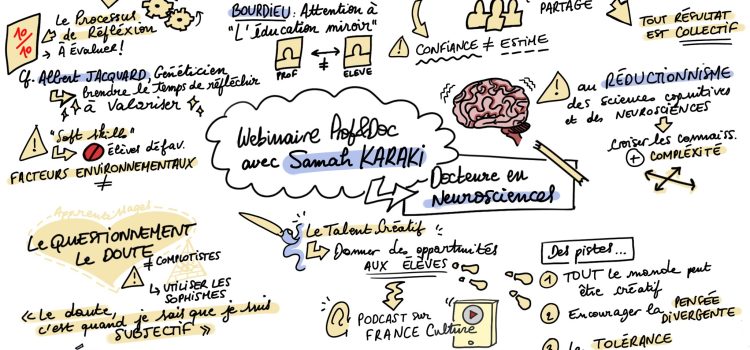 10
10
Le Processus
de Réflexion
→ À évaluer!
Cf. Albert JACQUARD, Généticien
Prendre le temps de réfléchir
à Valoriser
"Soft skills"
élèves défav.
FACTEURS ENVIRONNEMENTAUX
≠
BOURDIEU: Attention à
"L'éducation miroir"
PROF
≠
ELEVE
PARTAGE
CONFIANCE ≠ ESTIME
TOUT RÉSULTAT
EST COLLECTIF
au RÉDUCTIONNISME
des Sciences cognitives
et des NEUROSCIENCES
Croiser les connaiss.
+ COMPLEXITÉ
Webinaire Prof&Doc
avec Samah KARAKI
Docteure en
Neurosciences
Apprentissages
LE QUESTIONNEMENT
LE DOUTE
≠ COMPLOTISTES
UTILISER LES
SOPHISMES
« Le doute,
c'est quand je sais que je suis
SUBJECTIF »
Le Talent Créatif
Donner des opportunités
AUX ÉLÈVES
PODCAST sur
FRANCE Culture
Des pistes...
1 TOUT le monde peut
être créatif
2 Encourager la PENSÉE
DIVERGENTE
3 La TOLÉRANCE